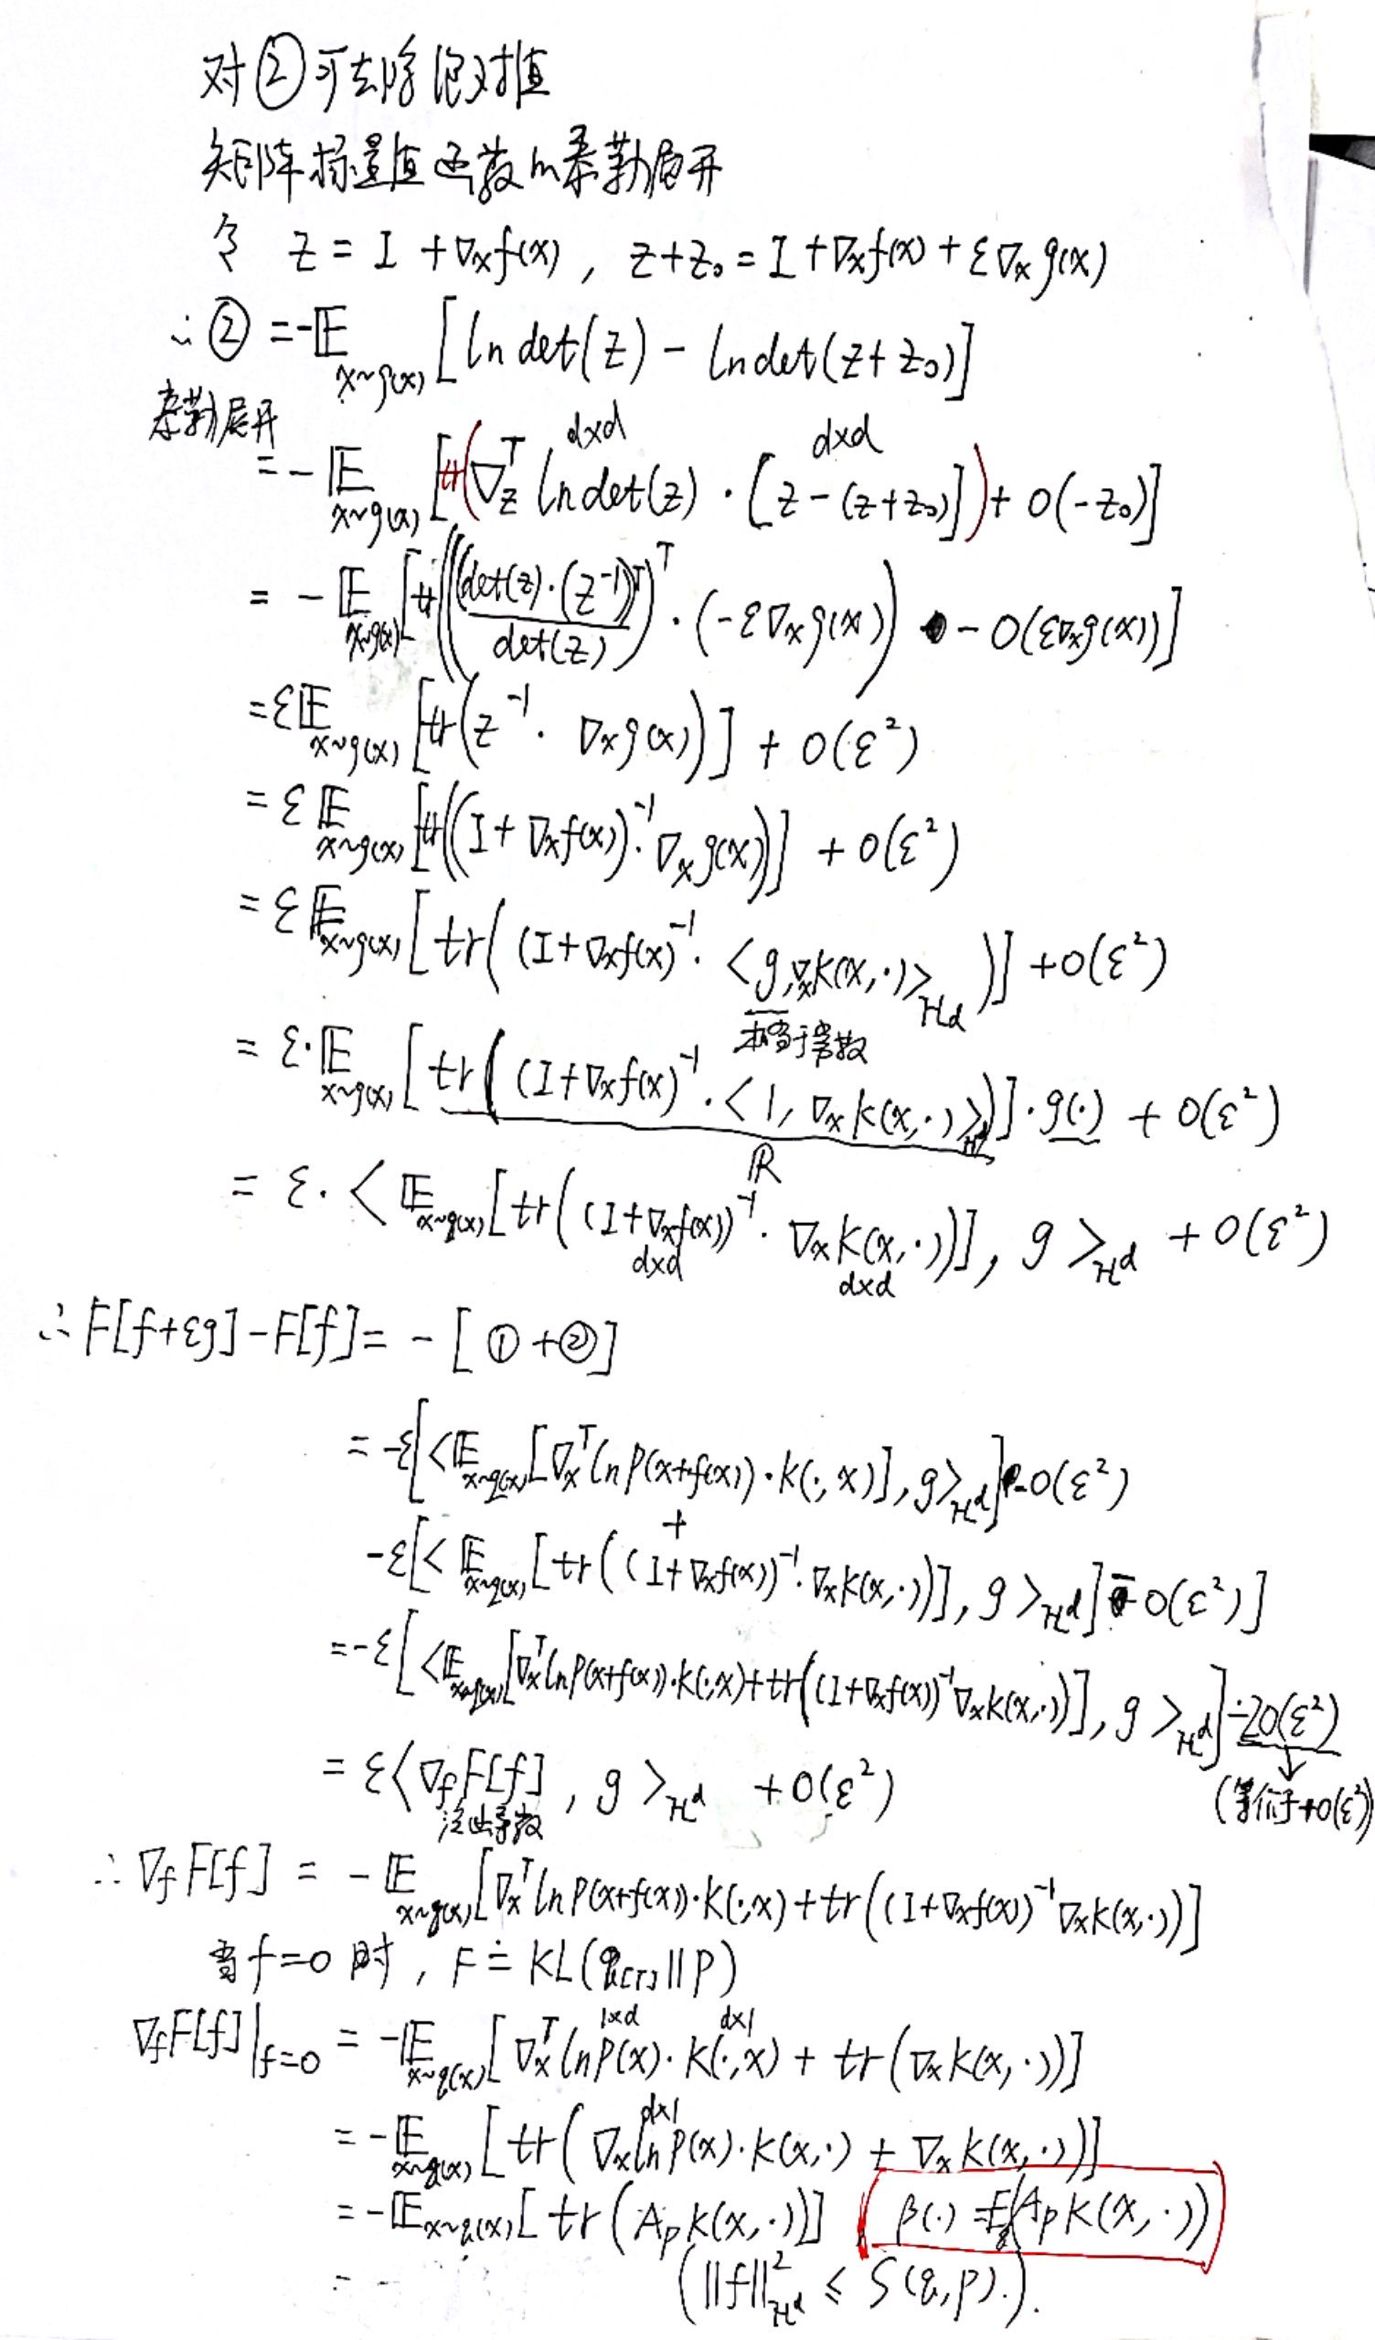 对②可去除绝对值
矩阵标量值函数的泰勒展开
令 z = I + ∇ₓf(x) , z+z₀ = I + ∇ₓf(x) + ε∇ₓg(x)
∴ ② = -𝔼_{x~q(x)} [ln det(z) - ln det(z+z₀)]
泰勒展开
d×d d×d
= -𝔼_{x~q(x)} [tr(∇_z^T ln det(z) · [z-(z+z₀)]) + O(-z₀)]
= -𝔼_{x~q(x)} [tr(((det(z)·(z⁻¹)^T)/det(z))^T · (-ε∇ₓg(x))) - O(ε∇ₓg(x))]
= ε𝔼_{x~q(x)} [tr(z⁻¹ · ∇ₓg(x))] + O(ε²)
= ε𝔼_{x~q(x)} [tr((I+∇ₓf(x))⁻¹ · ∇ₓg(x))] + O(ε²)
= ε𝔼_{x~q(x)} [tr((I+∇ₓf(x)⁻¹ · <g,∇ₓk(x,·)>_{H^d})] + O(ε²)
相当于常数
= ε·𝔼_{x~q(x)} [tr((I+∇ₓf(x)⁻¹ · <1, ∇ₓk(x,·)>_{H^d})] · g(·) + O(ε²)
ℝ
= ε · <𝔼_{x~q(x)} [tr((I+∇ₓf(x))⁻¹ · ∇ₓk(x,·))], g>_{H^d} + O(ε²)
d×d d×d
∴ F[f+εg]-F[f] = -[①+②]
= -ε[<𝔼_{x~q(x)}[∇ₓ^T ln p(x+f(x)) · k(·,x)], g>_{H^d}] - O(ε²)
+
-ε[<𝔼_{x~q(x)}[tr((I+∇ₓf(x))⁻¹ · ∇ₓk(x,·))], g>_{H^d}] - O(ε²)]
= -ε[<𝔼_{x~q(x)}[∇ₓ^T ln p(x+f(x))·k(·,x)+tr((I+∇ₓf(x))⁻¹∇ₓk(x,·))], g>_{H^d}] - 2O(ε²)
(等价于+O(ε²))
= ε<∇_f F[f], g>_{H^d} + O(ε²)
泛函导数
∴ ∇_f F[f] = -𝔼_{x~q(x)}[∇ₓ^T ln p(x+f(x))·k(·,x)+tr((I+∇ₓf(x))⁻¹∇ₓk(x,·))]
当f=0时, F ≐ KL(q_{[T]}||p)
1×d d×1
∇_f F[f]|_{f=0} = -𝔼_{x~q(x)}[∇ₓ^T ln p(x)·k(·,x) + tr(∇ₓk(x,·))]
d×1
= -𝔼_{x~q(x)} [tr(∇ₓ ln p(x)·k(x,·) + ∇ₓk(x,·))]
= -𝔼_{x~q(x)} [tr(A_p k(x,·))] β(·) = E_q(A_p k(x,·))
= -- (||f||²_{H^d} ≤ S(q,p).).